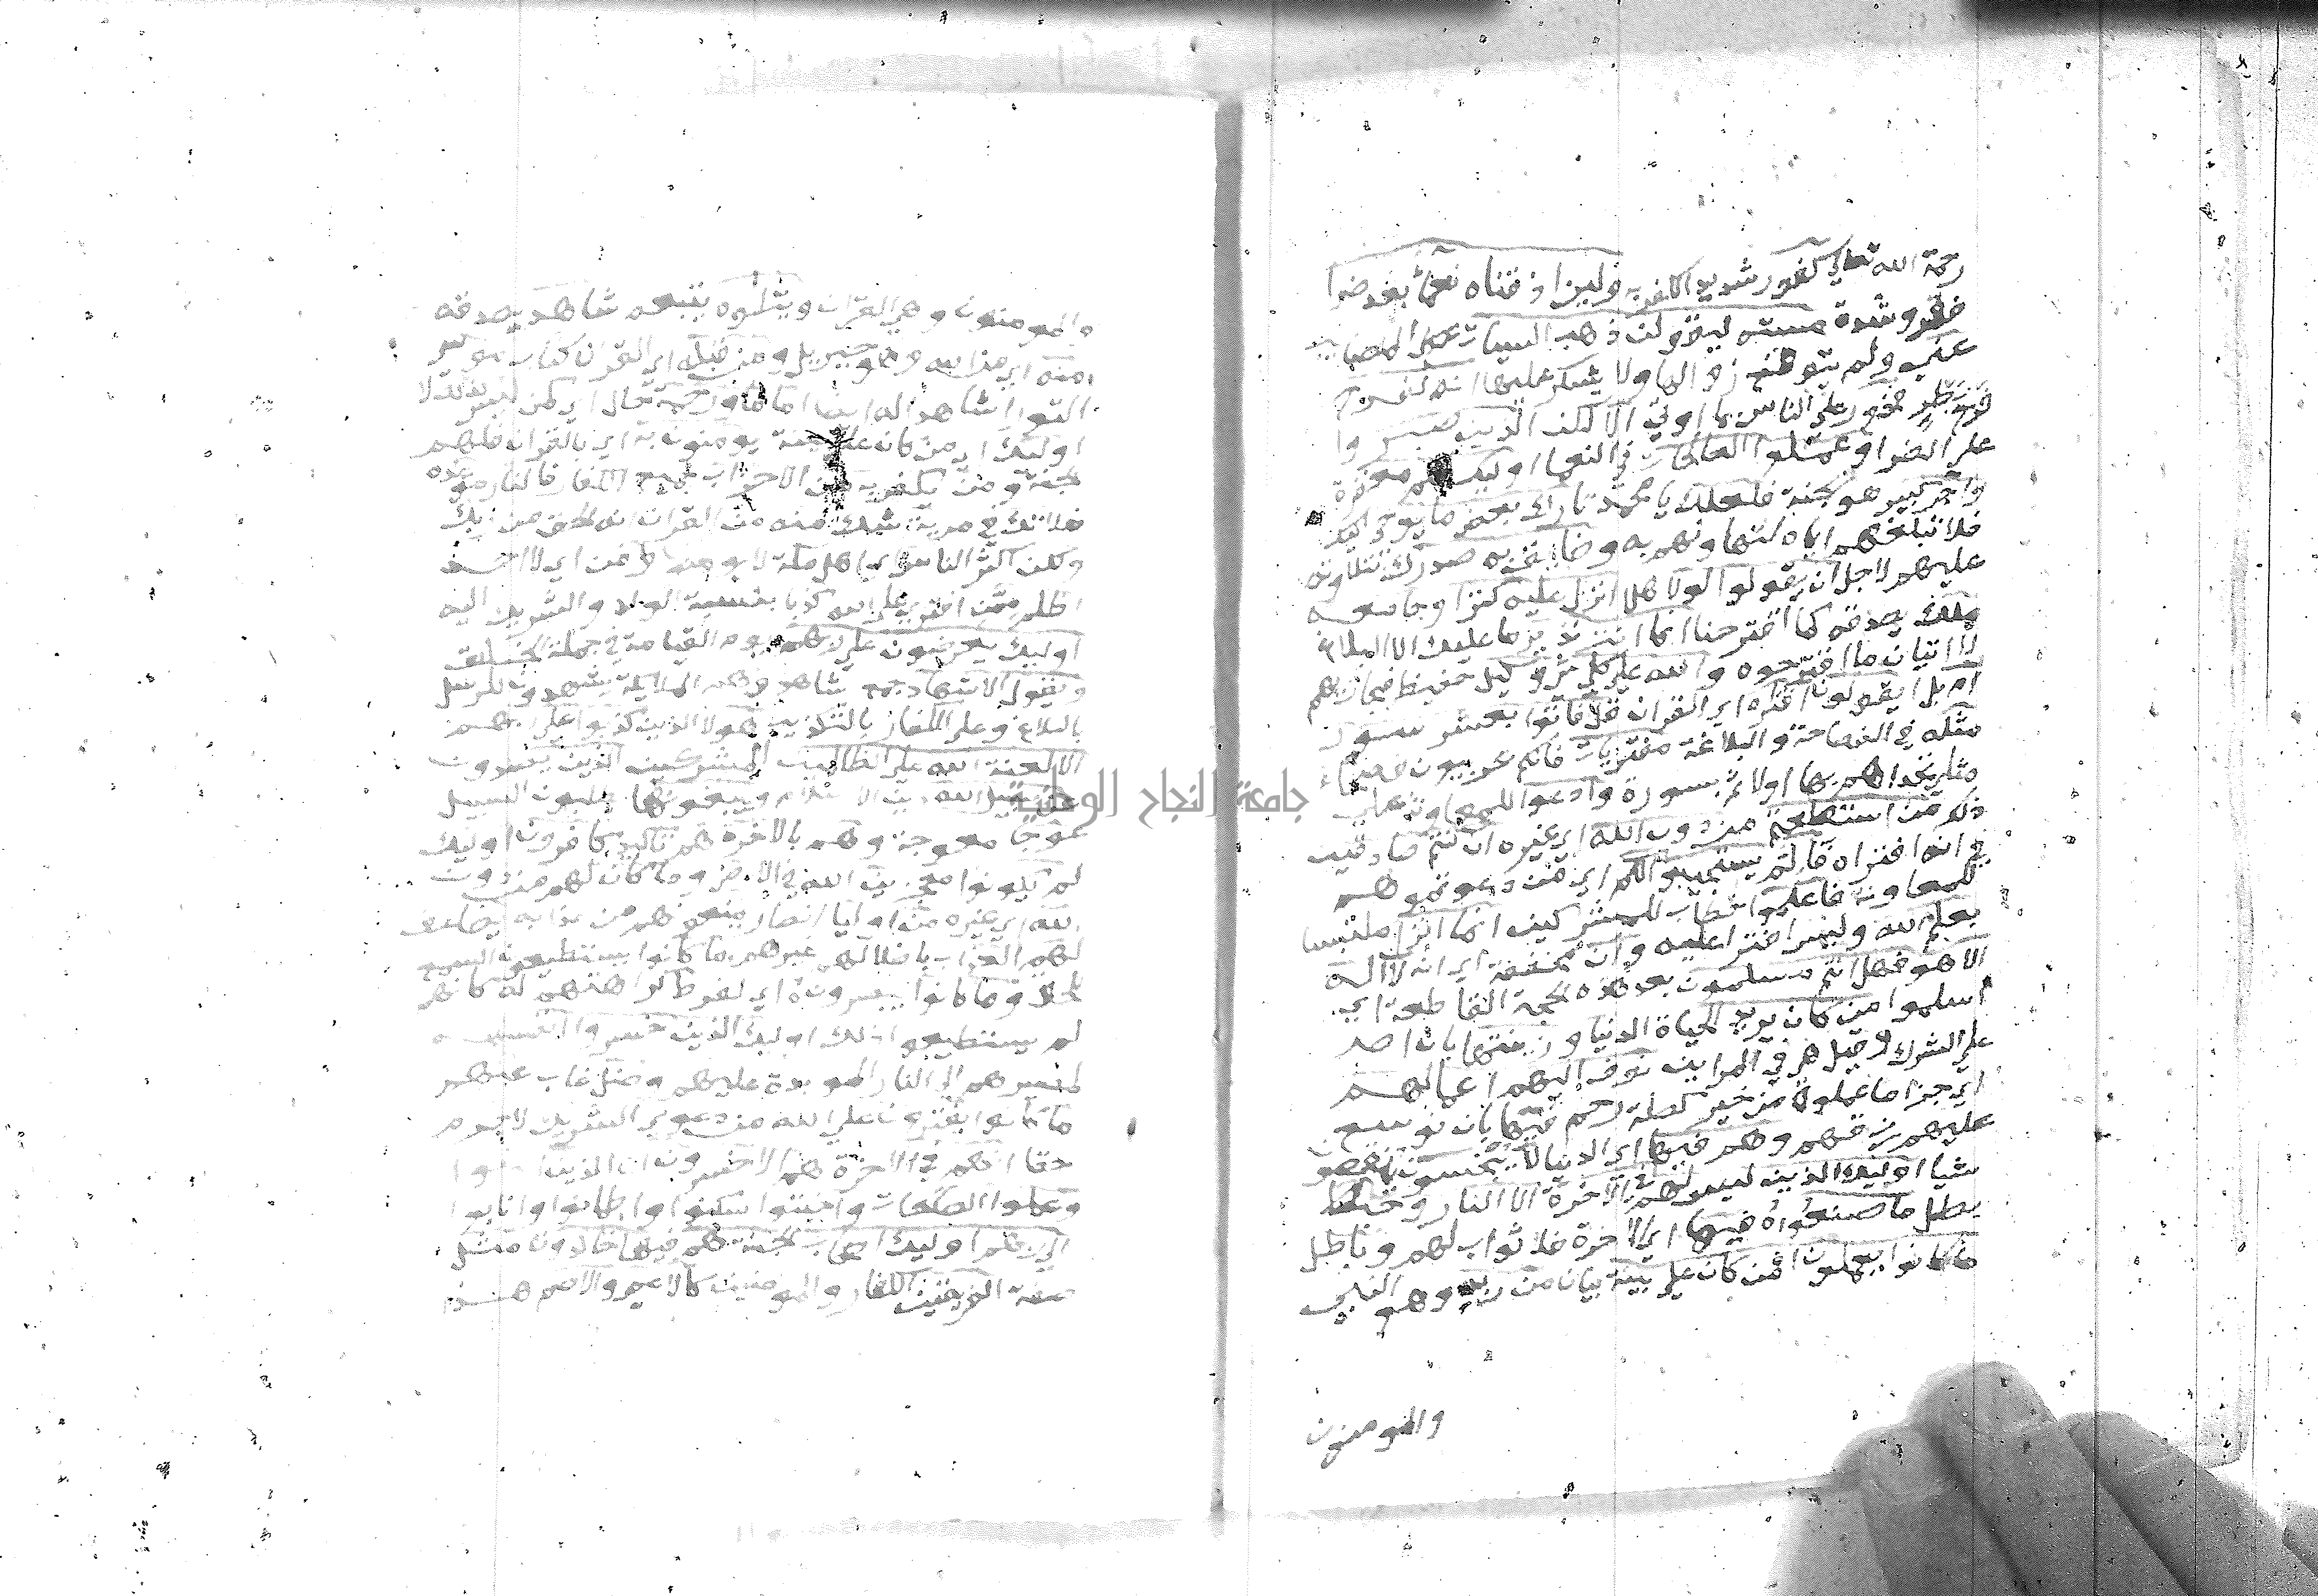 رحمة الله تعالي كفور شديد الكفر به ولين اذقناه نعما بعد ضرا
فقر وشدة مسته ليقولن ذهب السيات عني المصايب
عني ولم يتوقع زوالها ولا يشكر عليها انه لفرح
فرح بطر فخور علي الناس بما اوتي الا لكن الذين صبروا
علي الضرا وعملوا الصالحات في النعما اوليك لهم مغفرة
واجر كبير هو الجنة فلعلك يا محمد تارك بعض ما يوحي اليك
فلا تبلغهم اياه لتهاونهم به وضايق به صدرك بتلاوته
عليهم لاجل ان يقولوا لولا هلا انزل عليه كنز او جا معه
ملك يصدقه كما اقترحنا انما انت نذير ما عليك الا البلاغ
لا اتيان ما اقترحوه والله علي كل شي وكيل حفيظ فيجازيهم
ام بل ايقولون افتراه اي القران قل فاتوا بعشر سور
مثله في الفصاحة والبلاغة مفتريات فانكم عربيون فصحاء
مثلي تحداهم بها اولا ثم بسورة وادعوا للمعاونة علي
ذلك من استطعتم من دون الله اي غيره ان كنتم صادقين
في انه افتراه فالم يستجيبوا لكم اي من دعوتموهم
للمعاونة فاعلموا خطاب للمشركين انما انزل ملتبسا
بعلم الله وليس افترا عليه وان مخففة اي انه لا اله
الا هو فهل انتم مسلمون بعد هذه الحجة القاطعة اي
اسلموا من كان يريد الحياة الدنيا وزينتها بان اصر
علي الشرك وقيل هي في المرايين نوف اليهم اعمالهم
اي جزا ما عملوه من خير كصلة رحم فيها بان نوسع
عليهم رزقهم وهم فيها اي الدنيا لا يبخسون ينقصون
شيا اوليك الذين ليس لهم في الاخرة الا النار وحبط
بطل ما صنعوا فيها اي الاخرة فلا ثواب لهم وباطل
ما كانوا يعملون افمن كان علي بينة بيان من ربه وهو النبي
والمومنون
والمومنون وهي القران ويتلوه يتبعه شاهد يصدقه
منه اي من الله وهو جبريل ومن قبله اي القران كتاب موسي
التوراة شاهد له ايضا اماما ورحمة حال اي كمن ليس كذلك لا
اوليك اي من كان علي بينة يومنون به اي بالقران فلهم
الجنة ومن يكفر به من الاحزاب جميع الكفار فالنار موعده
فلا تك في مرية شك منه من القران انه الحق من ربك
ولكن اكثر الناس اي اهل مكة لا يومنون ومن اي لا احد
اظلم ممن افتري علي الله كذبا بنسبة الولد والشريك اليه
اوليك يعرضون علي ربهم يوم القيامة في جملة الخلق
ويقول الاشهاد جمع شاهد وهم الملايكة يشهدون للرسل
بالبلاغ وعلي الكفار بالتكذيب هولا الذين كذبوا علي ربهم
الا لعنة الله علي الظالمين المشركين الذين يصدون
عن سبيل الله دين الاسلام ويبغونها يطلبون السبيل
عوجا معوجة وهم بالاخرة هم تاكيد كافرون اوليك
لم يكونوا معجزين الله في الارض وما كان لهم من دون
الله اي غيره من اوليا انصار يمنعونهم من عذابه يضاعف
لهم العذاب باضلالهم غيرهم ما كانوا يستطيعون السمع
للحق وما كانوا يبصرون اي لفرط كراهتهم له كانهم
لم يستطيعوا ذلك اوليك الذين خسروا انفسهم
لمصيرهم الي النار الموبدة عليهم وضل غاب عنهم
ما كانوا يفترون علي الله من دعوي الشريك لاجرم
حقا انهم في الاخرة هم الاخسرون ان الذين امنوا
وعملوا الصالحات واخبتوا سكنوا واطمانوا وانابوا
الي ربهم اوليك اصحاب الجنة هم فيها خالدون مثل
صفة الفريقين الكفار والمومنين كالاعمي والاصم هذا
جامعة النجاح الوطنية